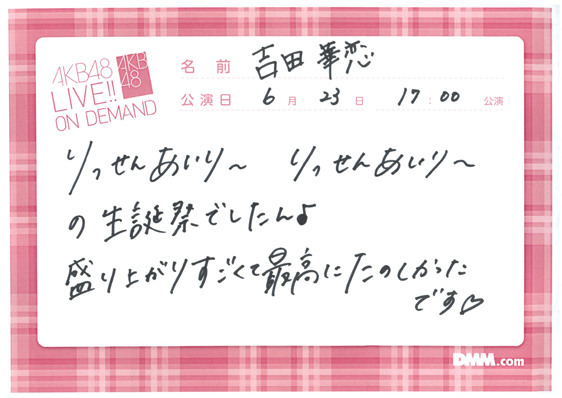 AKB48
LIVE!!
ON DEMAND
AKB
48
名前 吉田華恋
公演日 6月23日 17:00 公演
りっせんあいり〜 りっせんあいり〜
の生誕祭でしたん♪
盛り上がりすごくて最高にたのしかった
です♡
DMM.com